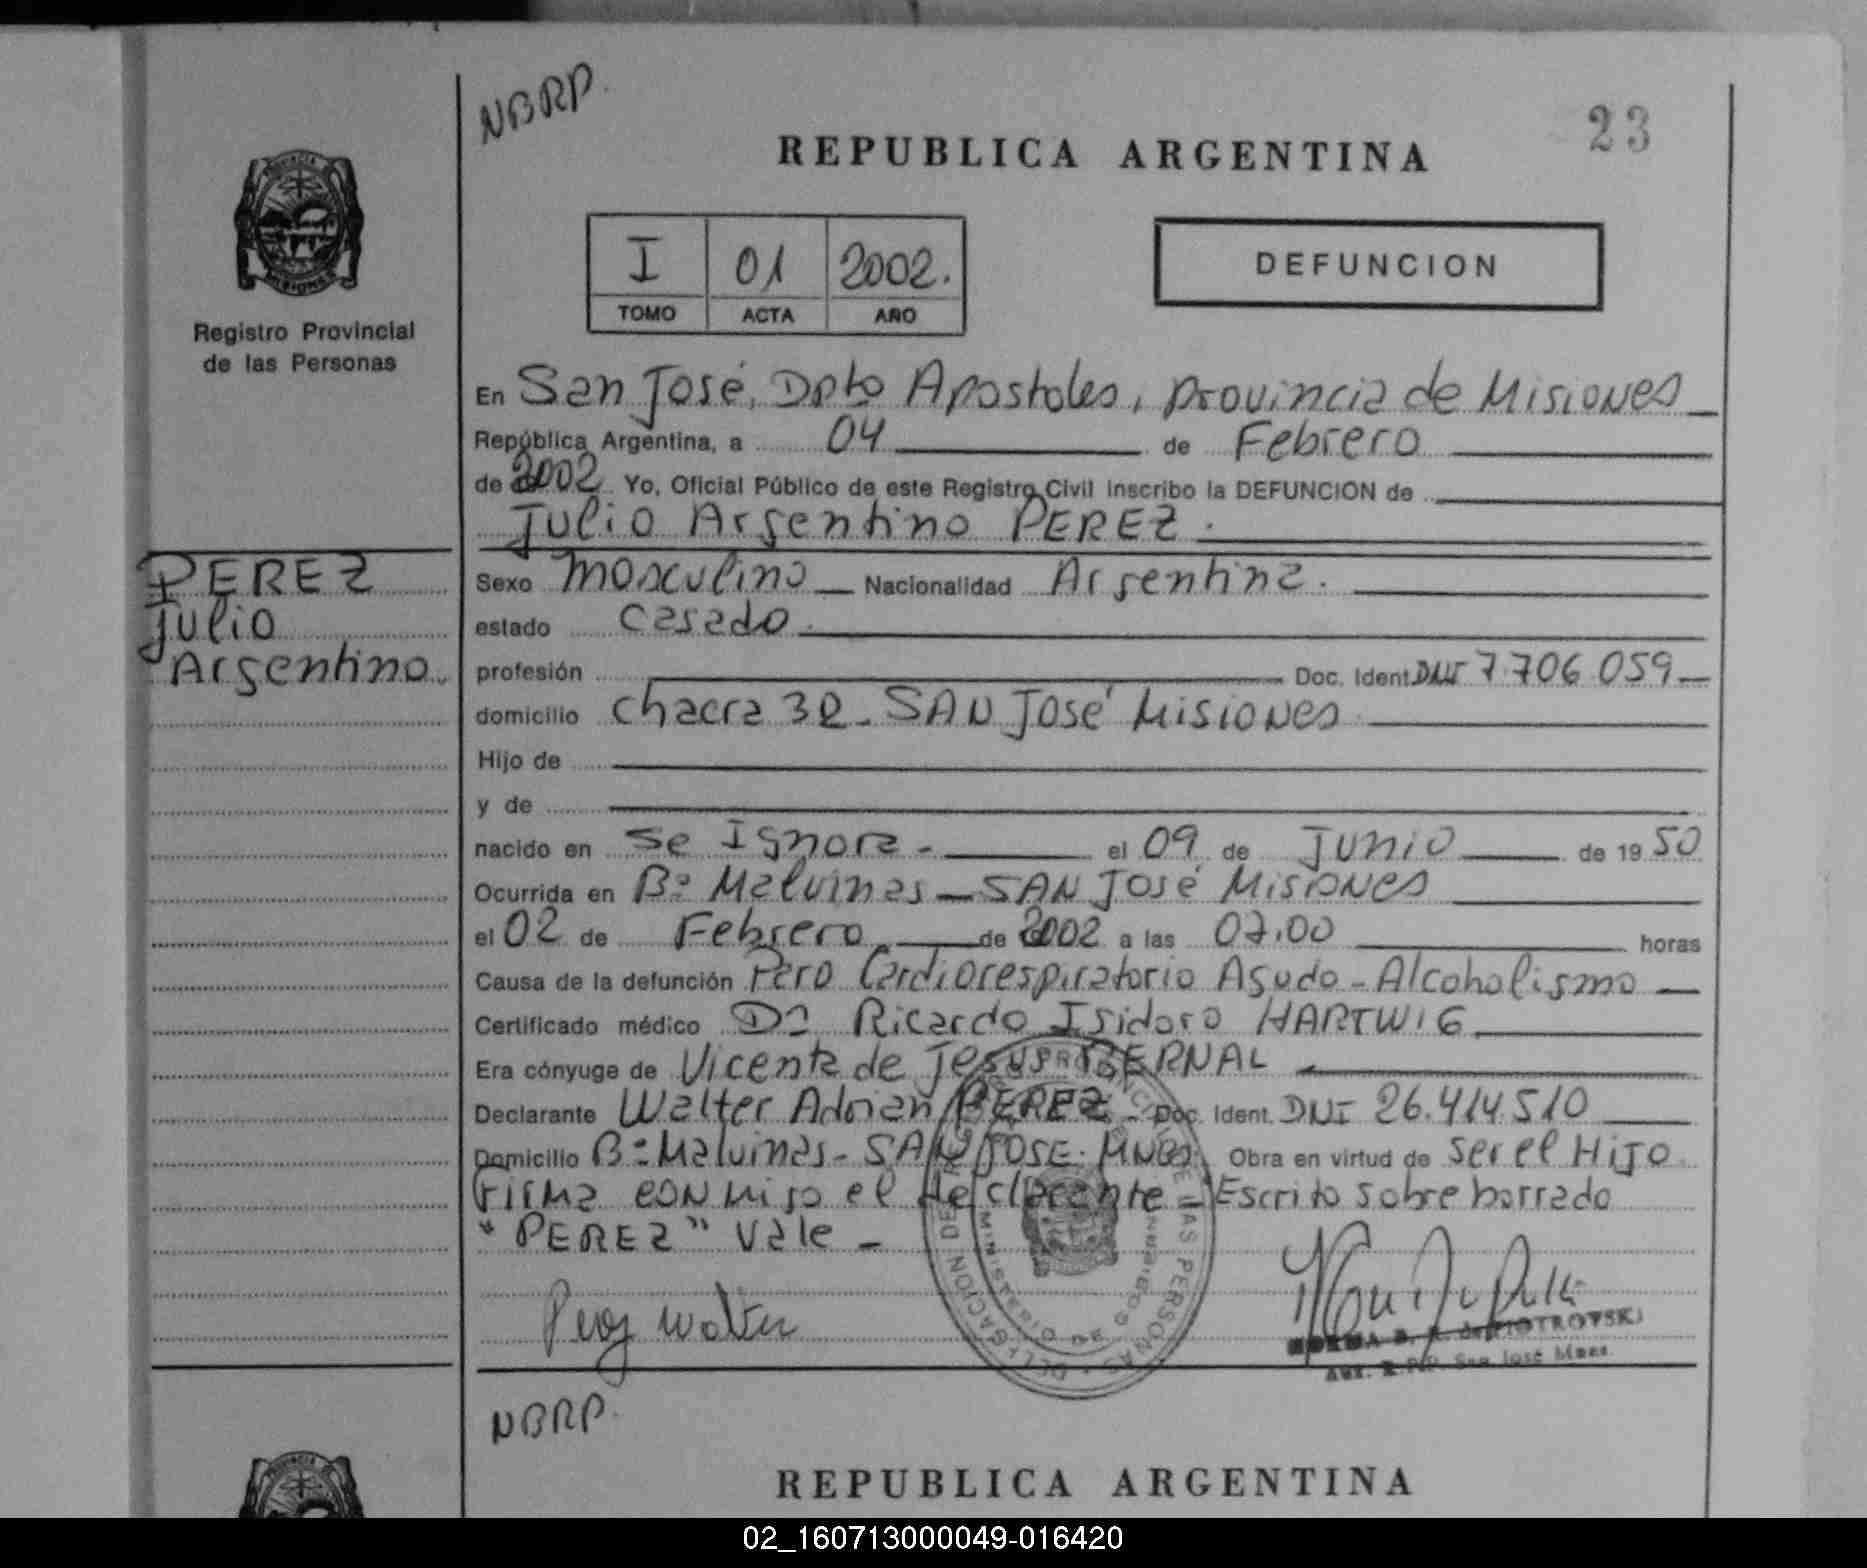 NBRP.
23
REPUBLICA ARGENTINA
I 01 2002.
TOMO ACTA AÑO
DEFUNCION
Registro Provincial
de las Personas
En San José, Dpto Apostoles, provincia de Misiones
República Argentina, a 04 de Febrero
de 2002 Yo, Oficial Público de este Registro Civil inscribo la DEFUNCION de
Julio Argentino PEREZ.
PEREZ
Julio
Argentino.
Sexo masculino Nacionalidad Argentina.
estado casado.
profesión Doc. Ident. DNI 7.706.059
domicilio chacra 32 - SAN José Misiones
Hijo de
y de
nacido en se Ignora - el 09 de Junio de 1950
Ocurrida en Bº Malvinas - SAN José Misiones
el 02 de Febrero de 2002 a las 07.00 horas
Causa de la defunción Paro Cardiorespiratorio Agudo - Alcoholismo
Certificado médico Dr Ricardo Isidoro HARTWIG
Era cónyuge de Vicenta de Jesus BERNAL
Declarante Walter Adrian PEREZ - Doc. Ident. DNI 26.414.510
Domicilio Bº Malvinas - SAN JOSE. MNES. Obra en virtud de ser el HIJO
Firma conmigo el declarante - Escrito sobre borrado
"PEREZ" Vale -
Perez Walter
PIOTROVSKI
Aux. R.P.P. San José Mnes.
NBRP.
REPUBLICA ARGENTINA
02_160713000049-016420